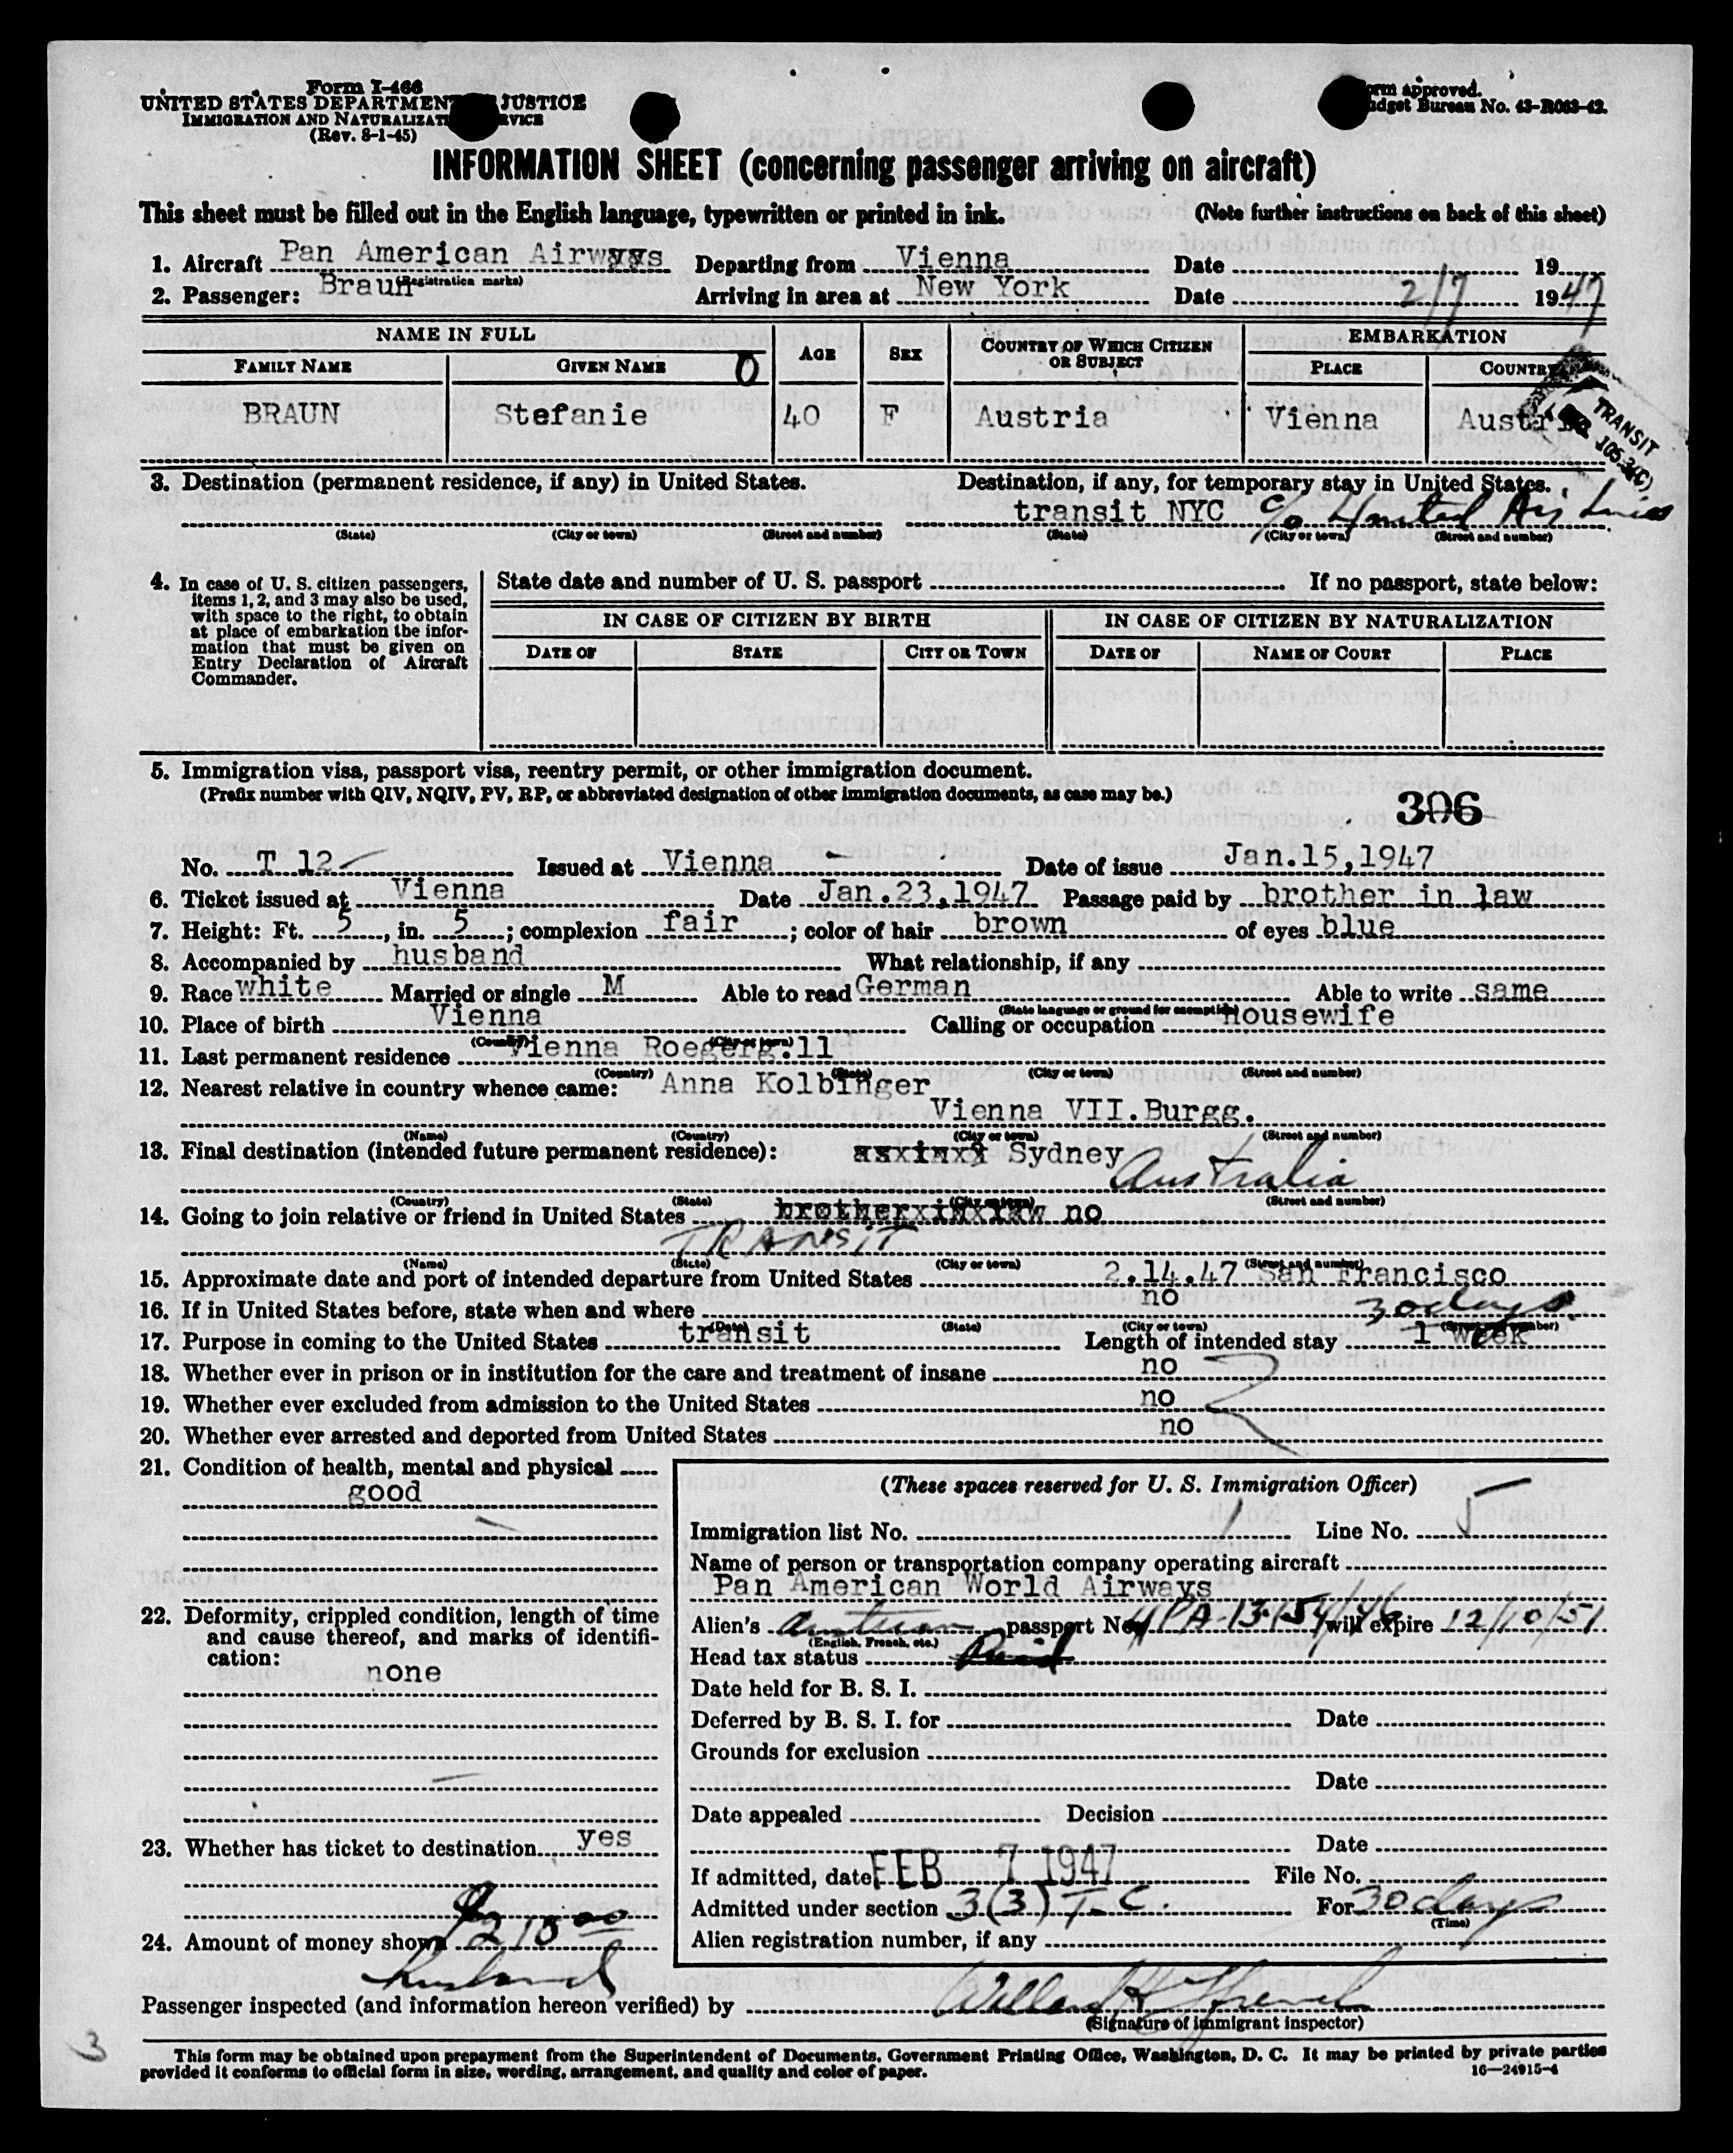 Form I-466
UNITED STATES DEPARTMENT JUSTICE
IMMIGRATION AND NATURALIZAT RVICE
(Rev. 8-1-45)
orm approved.
udget Bureau No. 43-R063-42.
INFORMATION SHEET (concerning passenger arriving on aircraft)
This sheet must be filled out in the English language, typewritten or printed in ink. (Note further instructions on back of this sheet)
1. Aircraft Pan American Airways Departing from Vienna Date 19
(Registration marks)
2. Passenger: Braun Arriving in area at New York Date 2/7 1947
NAME IN FULL AGE SEX COUNTRY OF WHICH CITIZEN OR SUBJECT EMBARKATION
FAMILY NAME GIVEN NAME 0 PLACE COUNTRY
BRAUN Stefanie 40 F Austria Vienna Austri
TRANSIT
105.3(C)
3. Destination (permanent residence, if any) in United States. Destination, if any, for temporary stay in United States.
transit NYC c/o United Air Lines
(State) (City or town) (Street and number) (State) (City or town) (Street and number)
4. In case of U. S. citizen passengers, items 1, 2, and 3 may also be used, with space to the right, to obtain at place of embarkation the information that must be given on Entry Declaration of Aircraft Commander.
State date and number of U. S. passport If no passport, state below:
IN CASE OF CITIZEN BY BIRTH IN CASE OF CITIZEN BY NATURALIZATION
DATE OF STATE CITY OR TOWN DATE OF NAME OF COURT PLACE
5. Immigration visa, passport visa, reentry permit, or other immigration document.
(Prefix number with QIV, NQIV, PV, RP, or abbreviated designation of other immigration documents, as case may be.)
306
No. T 12 Issued at Vienna Date of issue Jan.15,1947
6. Ticket issued at Vienna Date Jan.23,1947 Passage paid by brother in law
7. Height: Ft. 5, in. 5; complexion fair; color of hair brown of eyes blue
8. Accompanied by husband What relationship, if any
9. Race white Married or single M Able to read German Able to write same
(State language or ground for exemption)
10. Place of birth Vienna Calling or occupation Housewife
(Country) (City or town)
11. Last permanent residence Vienna Roegerg.11
(Country) (State) (City or town) (Street and number)
12. Nearest relative in country whence came: Anna Kolbinger
Vienna VII.Burgg.
(Name) (Country) (City or town) (Street and number)
13. Final destination (intended future permanent residence): Sydney
Australia
(Country) (State) (City or town) (Street and number)
14. Going to join relative or friend in United States brother in law no
TRANSIT
(Name) (State) (City or town) (Street and number)
15. Approximate date and port of intended departure from United States 2.14.47 San Francisco
16. If in United States before, state when and where no
30 days.
(Date) (State) (City or town) (Street and number)
17. Purpose in coming to the United States transit Length of intended stay 1 week
18. Whether ever in prison or in institution for the care and treatment of insane no
19. Whether ever excluded from admission to the United States no
20. Whether ever arrested and deported from United States no
21. Condition of health, mental and physical
good
22. Deformity, crippled condition, length of time and cause thereof, and marks of identification:
none
23. Whether has ticket to destination yes
24. Amount of money shown $210.00
husband
(These spaces reserved for U. S. Immigration Officer)
Immigration list No. 1 Line No. 5
Name of person or transportation company operating aircraft
Pan American World Airways
Alien's Austrian passport No. will expire 12/10/51
(English, French, etc.)
Head tax status Paid
Date held for B. S. I.
Deferred by B. S. I. for Date
Grounds for exclusion
Date
Date appealed Decision
Date
If admitted, date FEB 7 1947 File No.
Admitted under section 3(3) T.C. For 30 days
(Time)
Alien registration number, if any
Passenger inspected (and information hereon verified) by
(Signature of immigrant inspector)
3
This form may be obtained upon prepayment from the Superintendent of Documents, Government Printing Office, Washington, D. C. It may be printed by private parties
provided it conforms to official form in size, wording, arrangement, and quality and color of paper. 16—24915-4